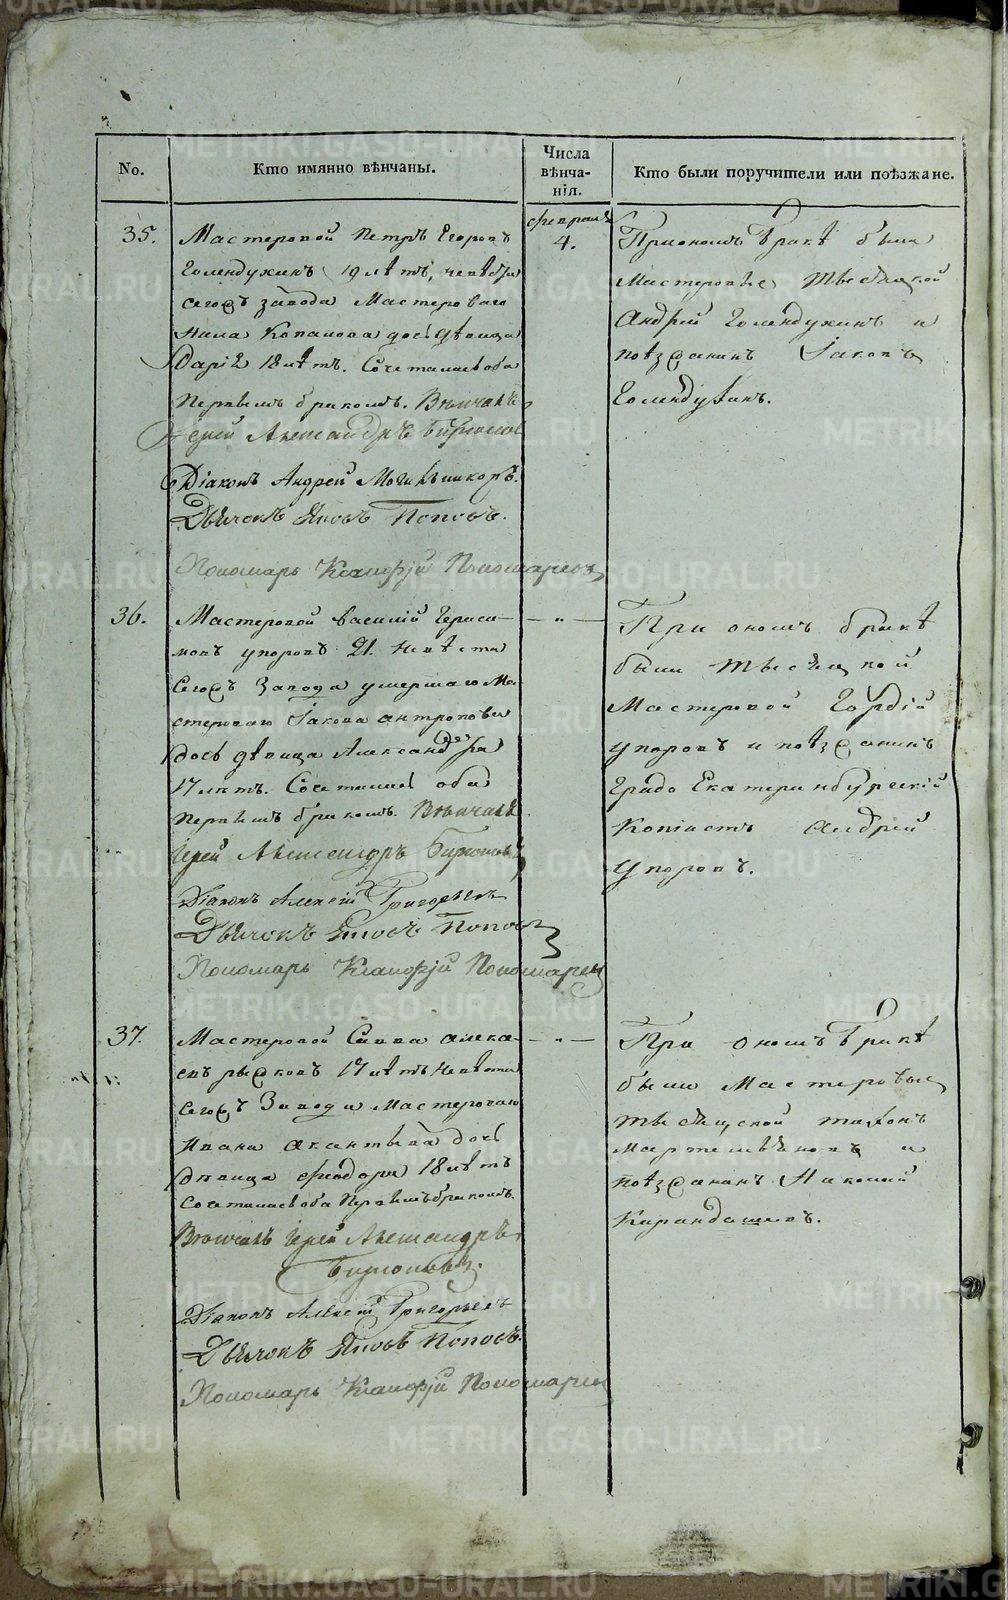 No.
Кто имянно вѣнчаны.
Числа
вѣнча-
нія.
Кто были поручители или поѣзжане.
35.
Мастеровой Петръ Егоровъ
Голендухинъ 19 лѣтъ,
завода Мастероваго
дочь дѣвица
Дарія 18 лѣтъ. Сочетались оба
Первымъ бракомъ. Вѣнчалъ
Іерей Александръ Бирюковъ
Діаконъ Андрей
Дьячокъ Яковъ Поповъ.
Пономарь Пономаревъ
февраля
4.
При ономъ бракѣ были
Мастеровые тысяцкой
Андрей Голендухинъ и
поѣзжанинъ Іаковъ
Голендухинъ.
36.
Мастеровой Василій Гераси-
мовъ упоровъ 21. Невѣста
Сегожъ Завода умершаго Ма-
стероваго Іакова антропова
дочь дѣвица Александра
17 лѣтъ. Сочетались оба
первымъ бракомъ. Вѣнчалъ
Іерей Александръ Бирюковъ
Діаконъ Алексій Григорьевъ
Дьячокъ Яковъ Поповъ
Пономарь Пономаревъ
— " —
При ономъ бракѣ
были тысяцкой
Мастеровой Гордій
упоровъ и поѣзжанинъ
Градо Екатеринбургскій
Копіистъ андрей
упоровъ.
37.
Мастеровой Савва алека-
евъ рыжковъ 17 лѣтъ Невѣста
Сегожъ Завода Мастероваго
Ивана дочь
дѣвица феодора 18 лѣтъ
Сочетались оба Первымъ бракомъ.
Вѣнчалъ Іерей Александръ
Бирюковъ.
Діаконъ Алексій Григорьевъ
Дьячокъ Яковъ Поповъ.
Пономарь Пономаревъ
— " —
При ономъ бракѣ
были Мастеровые
тысяцкой
и
поѣзжанинъ Николай
Карандашевъ.
METRIKI.GASO-URAL.RU